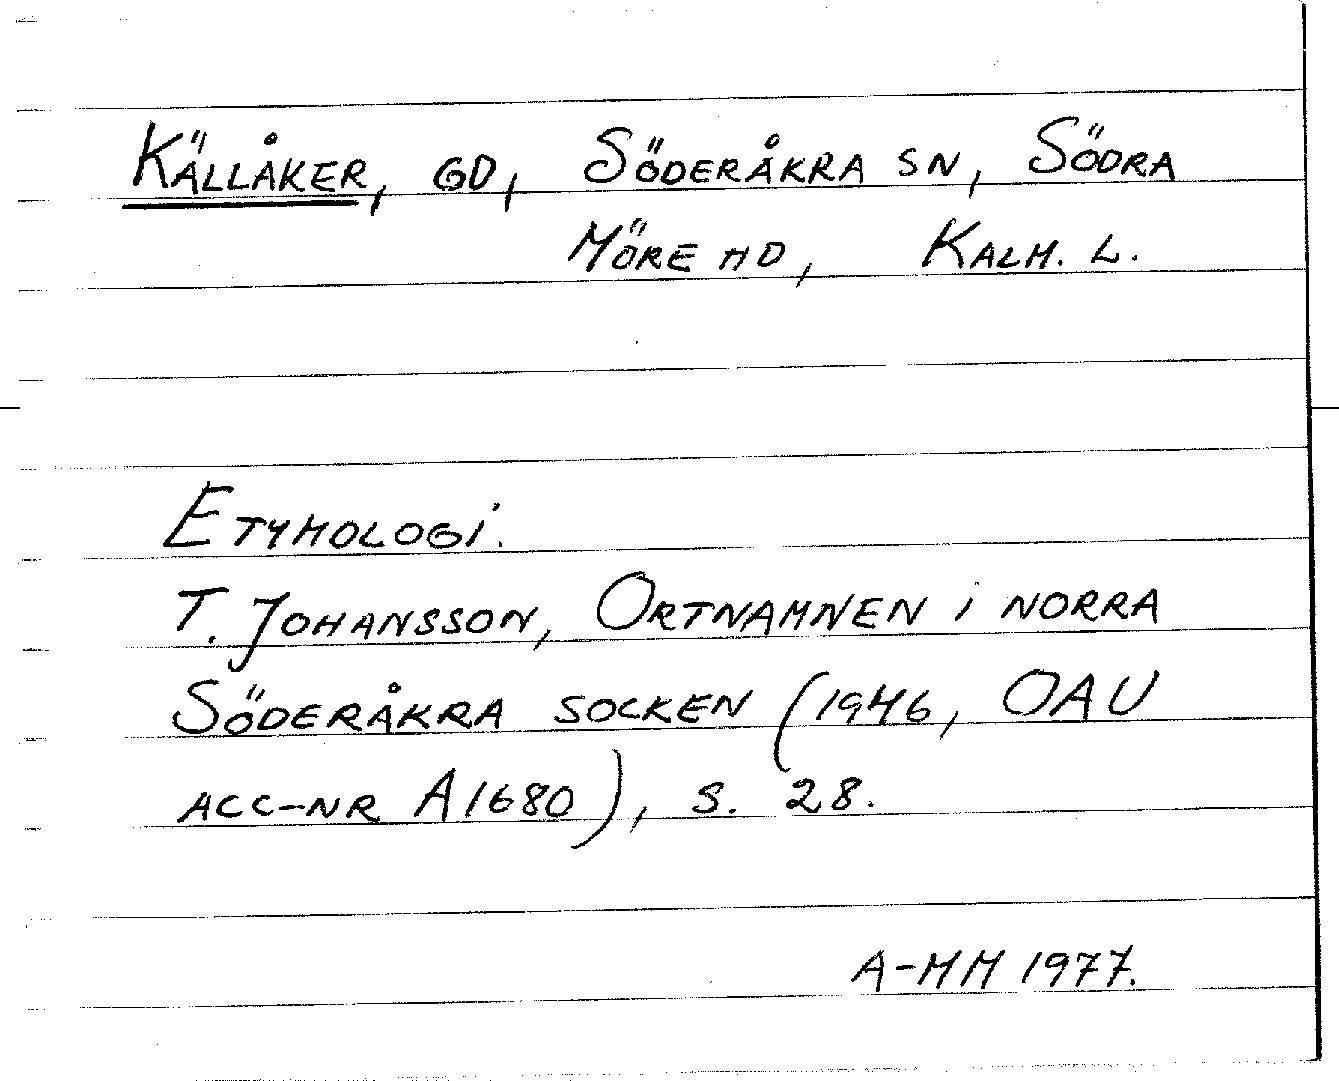 Källåker, gd, Söderåkra sn, Södra
Möre hd, Kalm. l.
Etymologi.
T. Johansson, Ortnamnen i norra
Söderåkra socken (1946, OAU
acc-nr A1680), s. 28.
A-MM 1977.